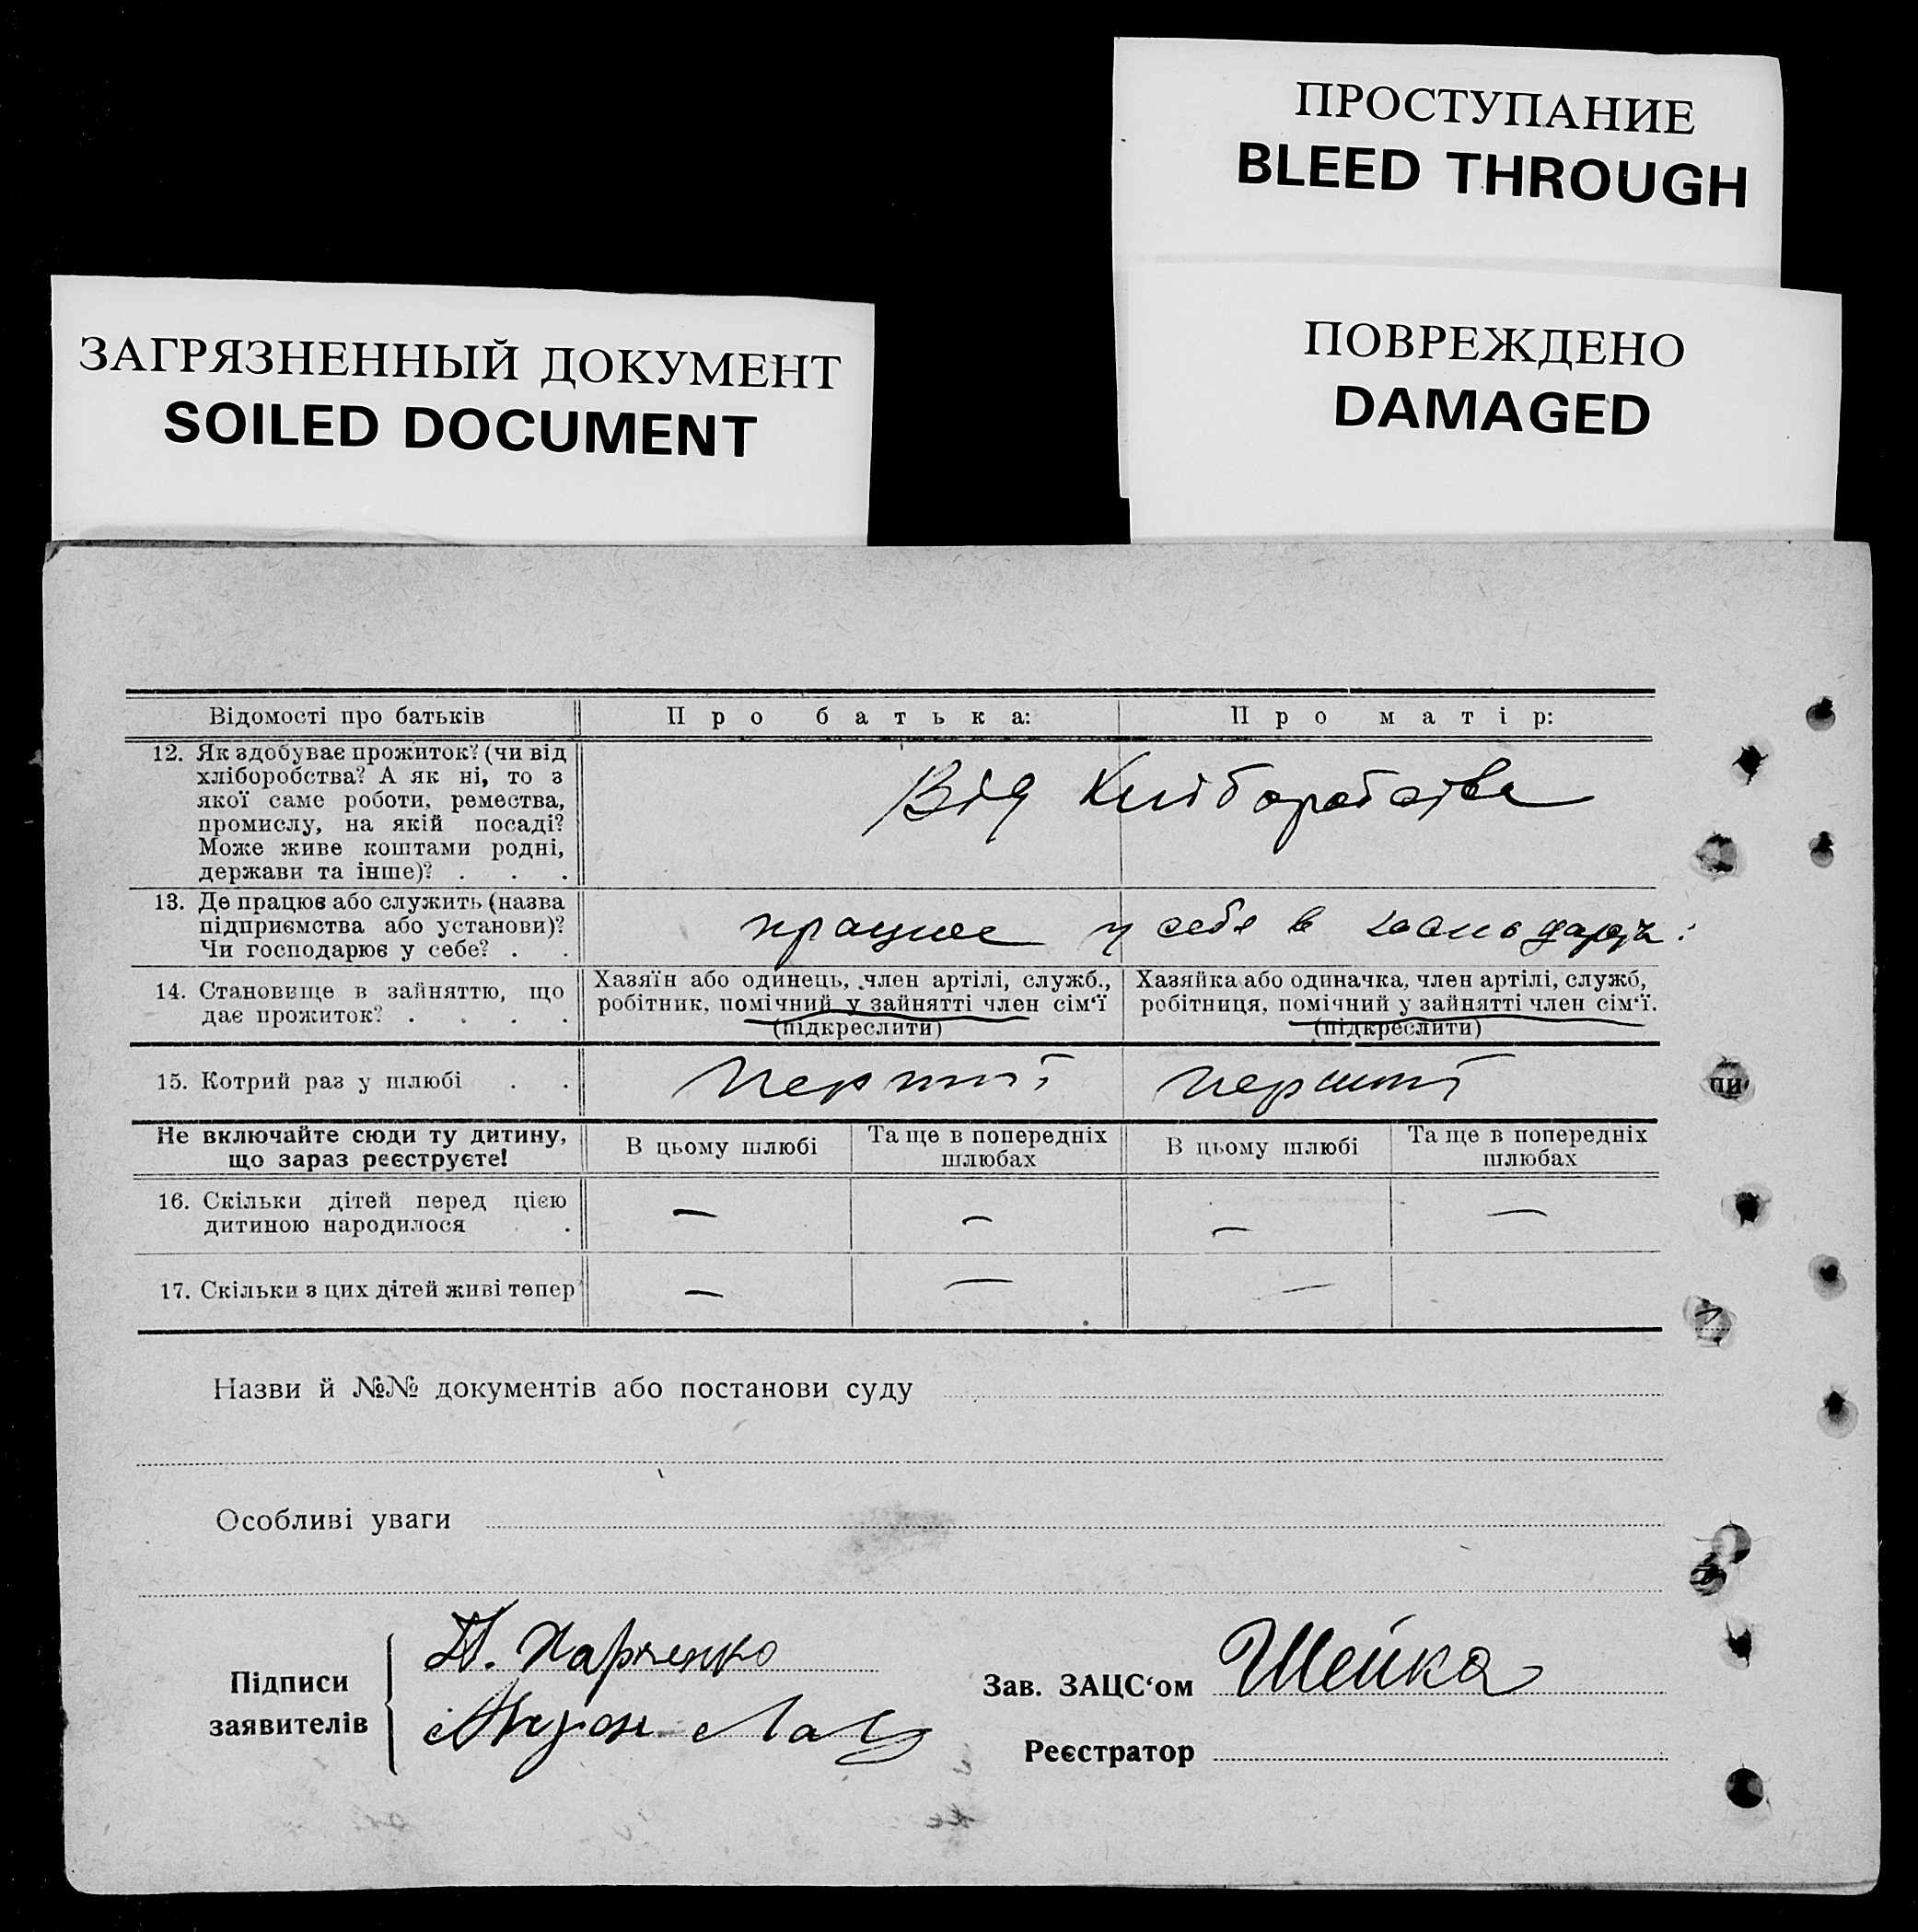 ПРОСТУПАНИЕ
BLEED THROUGH
ПОВРЕЖДЕНО
DAMAGED
ЗАГРЯЗНЕННЫЙ ДОКУМЕНТ
SOILED DOCUMENT
Відомості про батьків Про батька: Про матір:
12. Як здобуває прожиток? (чи від
хліборобства? А як ні, то з
якої саме роботи, ремества,
промислу, на якій посаді?
Може живе коштами родні,
держави та інше)? . . .
Від хліборобства
13. Де працює або служить (назва
підприємства або установи)?
Чи господарює у себе? . .
працює у себе в
14. Становище в зайняттю, що
дає прожиток? . . . .
Хазяїн або одинець, член артілі, служб.,
робітник, помічний у зайнятті член сім‘ї
(підкреслити)
Хазяйка або одиначка, член артілі, служб,
робітниця, помічний у зайнятті член сім‘ї.
(підкреслити)
15. Котрий раз у шлюбі . . перший перший
Не включайте сюди ту дитину,
що зараз реєструєте!
В цьому шлюбі
Та ще в попередніх
шлюбах
В цьому шлюбі
Та ще в попередніх
шлюбах
16. Скільки дітей перед цією
дитиною народилося .
— — — —
17. Скільки з цих дітей живі тепер — — —
Назви й №№ документів або постанови суду
Особливі уваги
Підписи
заявителів
Харченко
Зав. ЗАЦС‘ом Шейка
Реєстратор
пи